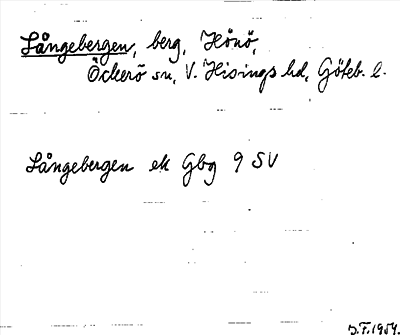 Långebergen, berg, Hönö,
Öckerö sn, V. Hisings hd, Göteb. l.
Långebergen ek Gbg 9 SV
1954.